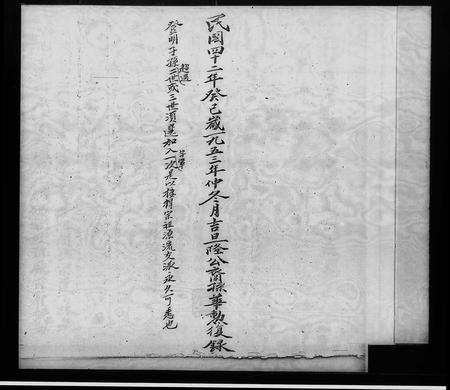 民國四十二年癸巳歲一九五三年仲冬月吉旦隆公裔孫華勲復錄
登明子孫二世或三世須選加入一次是以接續宗祖源流支派永久可悉也